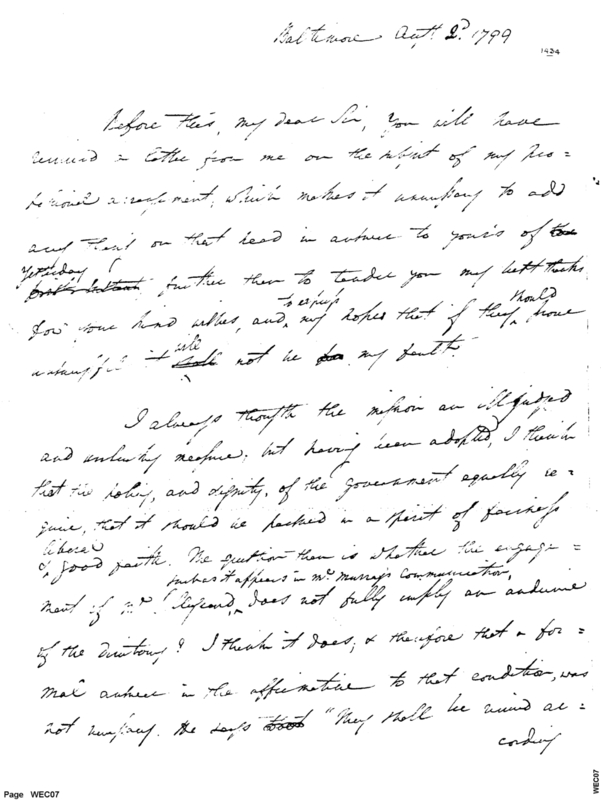 Baltimore Augt 2d. 1799
1434
Before this, my dear Sir, you will have
received a letter from me on the subject of my pro=
visional arrangement, which makes it unnecessary to add
any thing on that head in answer to yours of the
yesterday
further than to tender you my best thanks
to express should
for your kind wishes, and my hopes that if they prove
will
it shall not be my fault
I always thought the mission an ill judged
and unlucky measure; but having been adopted, I think
that the policy, and dignity, of the government equally re=
quire, that it should be pushed in a spirit of fairness
liberal
& good faith. The question then is whether the engage=
such as it appears in mr. Murray's communication,
ment of mr. Talleyrand, does not fully imply an audience
of the directory? I think it does, & therefore that a for=
mal answer in the affirmative to that condition, was
not necessary. He says that "They shall be received ac=
cording
Page WEC07
WEC07